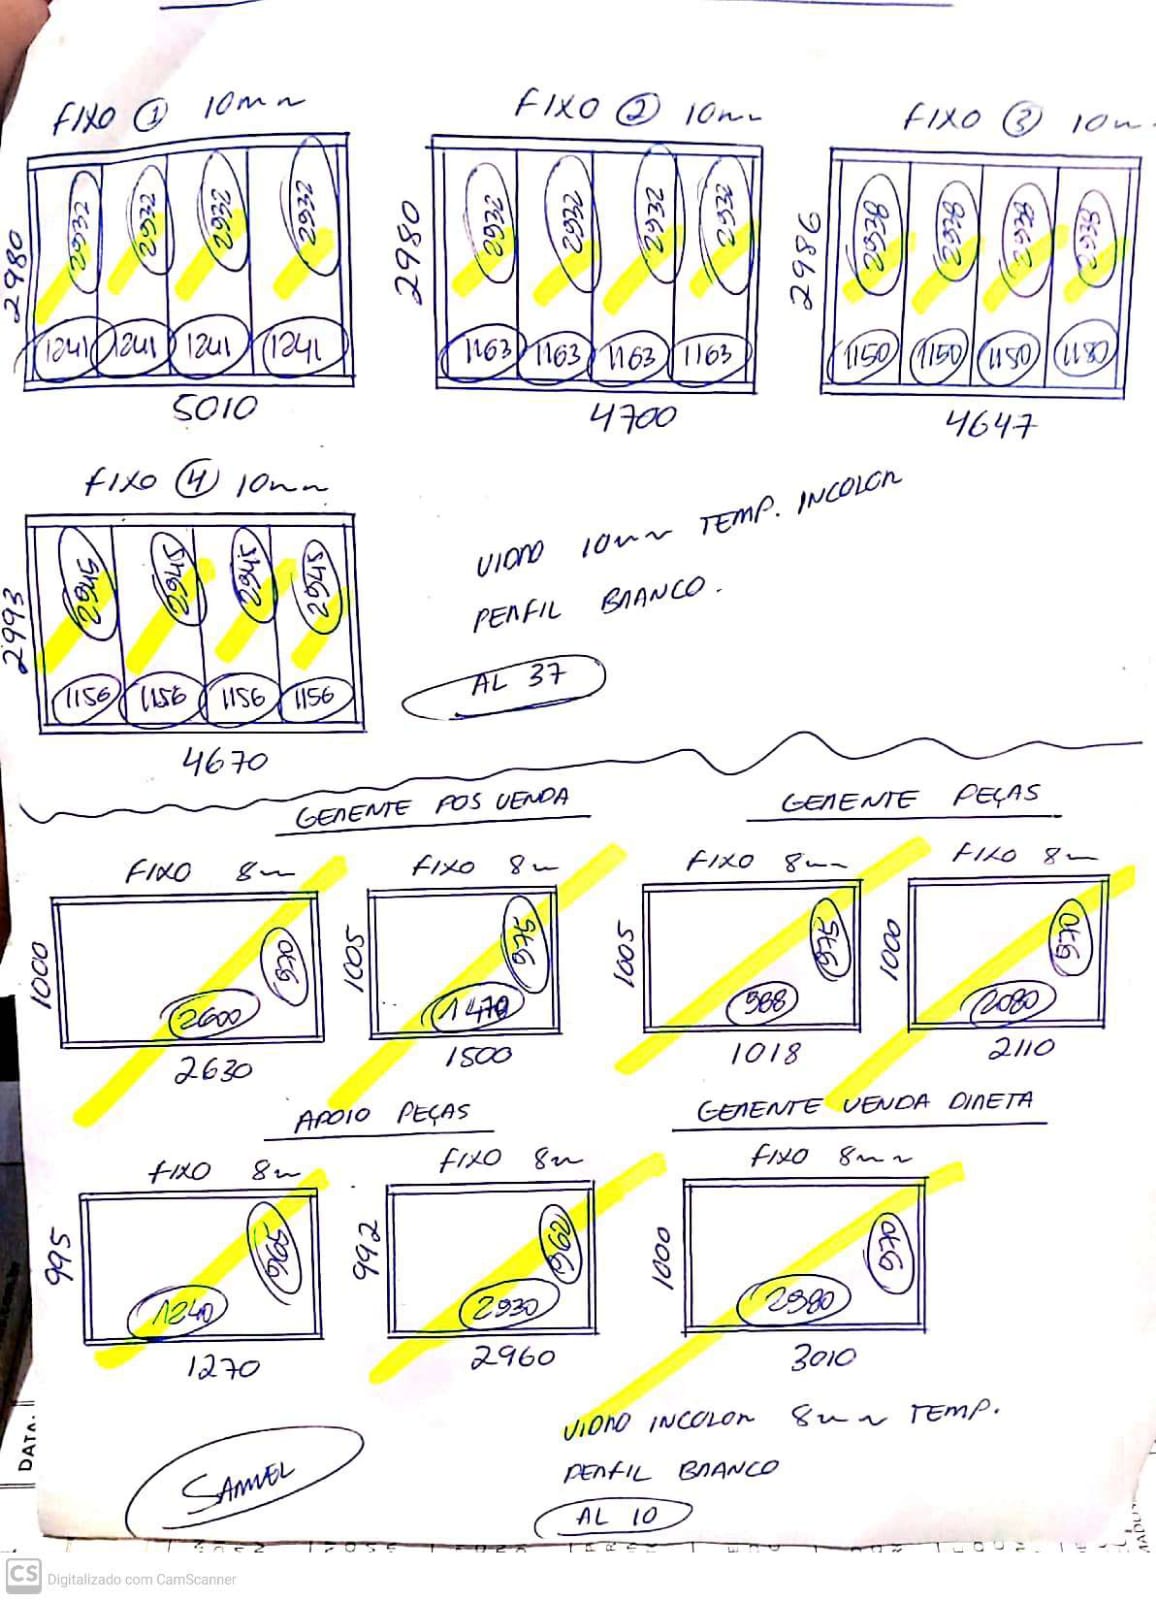 FIXO 1 10mm
2980
2932 2932 2932 2932
1241 1241 1241 1241
5010
FIXO 2 10mm
2980
2932 2932 2932 2932
1163 1163 1163 1163
4700
FIXO 3 10m
2986
2938 2938 2938 2938
1150 1150 1150 1180
4647
FIXO 4 10mm
2993
2945 2945 2945 2945
1156 1156 1156 1156
4670
VIDRO 10mm TEMP. INCOLOR
PERFIL BRANCO.
AL 37
GERENTE POS VENDA
FIXO 8m
1000
970
2600
2630
FIXO 8m
1005
975
1470
1500
GERENTE PEÇAS
FIXO 8mm
1005
975
988
1018
FIXO 8m
1000
970
2080
2110
APOIO PEÇAS
FIXO 8m
995
1240
1270
FIXO 8m
992
962
2930
2960
GERENTE VENDA DIRETA
FIXO 8mm
1000
970
2980
3010
VIDRO INCOLOR 8mm TEMP.
PERFIL BRANCO
AL 10
SAMUEL
DATA.
CS Digitalizado com CamScanner